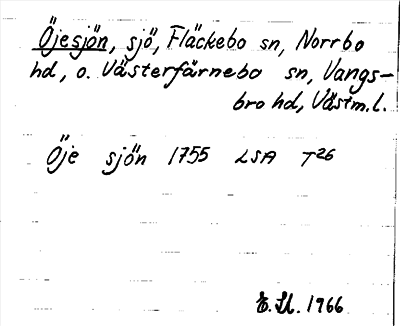 Öjesjön, sjö, Fläckebo sn, Norrbo
hd, o. Västerfärnebo sn, Vangs-
bro hd, Västm.l.
Öje sjön 1755 LSA T26
1966